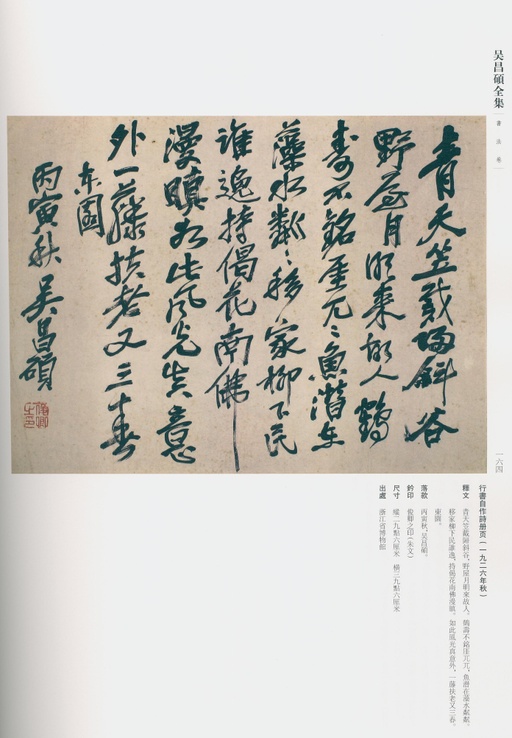 吴昌碩全集
書法卷
青天笠戴陽斜谷
野屋月明來故人鶴
壽不銘厓兀〻魚潛在
藻水粼〻移家柳下民
誰逸持偈花南佛
漫瞋如此風光真意
外一藤扶老又三春
东園
丙寅秋吴昌碩
一六四
行書自作詩册页（一九二六年秋）
釋文 青天笠戴陽斜谷，野屋月明來故人。鶴壽不銘厓兀兀，魚潛在藻水粼粼。
移家柳下民誰逸，持偈花南佛漫瞋。如此風光真意外，一藤扶老又三春。
東園。
落款 丙寅秋，吴昌碩。
鈐印 俊卿之印（朱文）
尺寸 縱二九點六厘米 橫三九點六厘米
出處 浙江省博物館